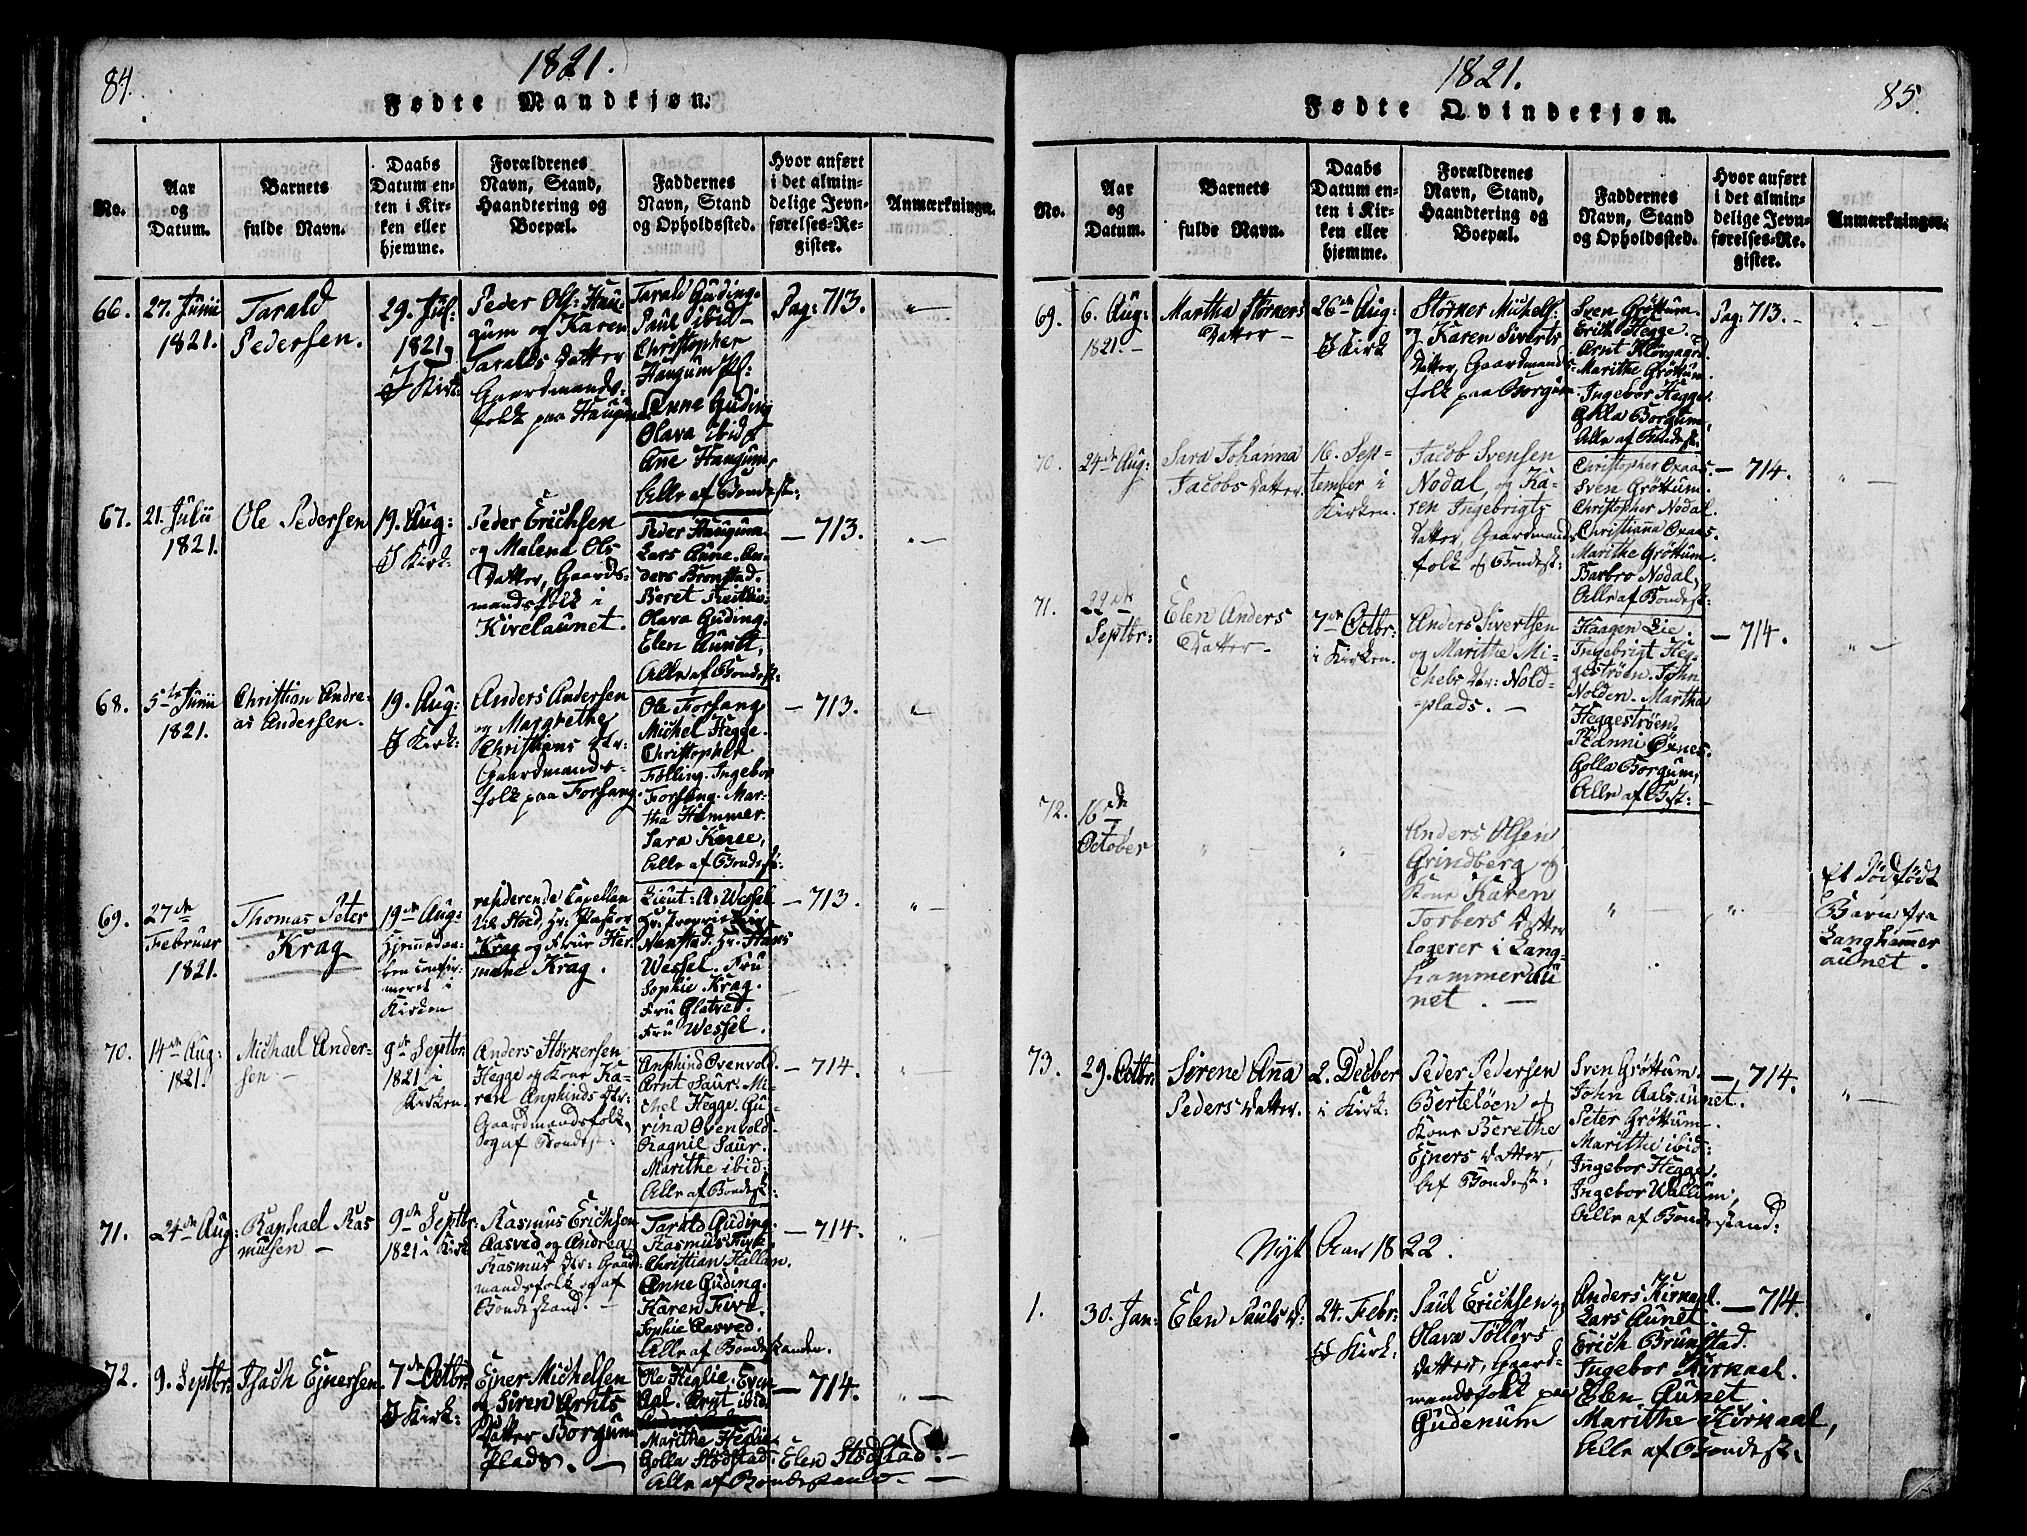 84.
1821.
Fødte Mandkjøn.
No.
Aar
og
Datum.
Barnets
fulde Navn.
Daabs
Datum en-
ten i Kir-
ken eller
hjemme.
Forældrenes
Navn, Stand,
Haandtering og
Boepæl.
Faddernes
Navn, Stand
og Opholdssted.
Hvor anført
i det almin-
delige Jevn-
førelses-Re-
gister.
Anmærkninger.
66.
27. Junii
1821.
Tarald
Pedersen.
29. Jul:
1821
I Kirk:
Peder Ols: Hau-
gum og Karen
Taralds Datter
Gaardmands-
folk paa Haugum
Tarald Guding.
Paul ibid
Christopher
Haugum
Anna Guding
Olava ibid
Ane Haugum,
Alle af Bondest:
Pag: 713.
67.
21. Julii
1821.
Ole Pedersen
19. Aug:
I Kirk:
Peder Erichsen
og Malena Ols
Datter, Gaards-
mandsfolk i
Kirelaunet.
Peder Haugum.
Lars Aune. An-
ders Bronstad.
Beret
Olava Guding.
Elen Aunet,
Alle af Bondest:
713.
68.
5te Junii
1821.
Christian Andre-
as Andersen.
19. Aug:
I Kirk:
Anders Andersen
og Margrethe
Christians Dtr:
Gaardmands-
folk paa Forsang.
Ole Forsang
Michel Hegge.
Christopher
Følling. Ingebor
Forsang. Mar-
tha Hammer.
Sara
Alle af Bondest:
713.
69.
27de
Februar
1821.
Thomas Peter
Krag
19de Aug:
Hjemmedaa-
ben confir-
meret i
Kirken
residerende Capellan
til Stod, Hr: Pastor
Krag og Frue Her-
mane Krag.
Lieut: A: Wessel
Hr: Proprietair
Nanstad. Hr: Hans
Wessel. Fru
Sophie Krag.
Fru Glatved.
Fru Wessel.
713.
70.
14de Aug:
1821.
Michael Ander-
sen
9de Septbr:
1821 i
Kirken.
Anders Størkersen
Hegge og Kone Ka-
ren Anphinds Dtr:
Gaardmandsfolk,
og af Bondest:
Anphind Ovenvold.
Arnt Saur. Mi-
chel Hegge. Gu-
rina Ovenvold.
Ragnil Saur.
Marithe ibid:
Alle af Bondest:
714.
71.
24de Aug:
Raphael Ras
musen
9de Septbr:
1821 i Kirk
Rasmus Erichsen
Aasved og Andrea
Rasmus Dtr: Gaard-
mandsfolk og af
Bondestand.
Tarald Guding.
Rasmus Five.
Christian Hallan.
Anne Guding.
Karen Five.
Sophie Aasved.
Alle af Bondestanden.
714.
72.
9. Septbr:
Isach Ejnersen
7de Octbr:
I Kirk:
Ejner Michelsen
og Siren Arnts
Datter Borgum
Plads.
Ole Heglie. Even
Arnt ibid.
Marithe Heglie.
Golla Stodstad. Elen Stodstad.
Alle af Bondestand.
714.
85.
1821.
Fødte Qvindekjøn.
No.
Aar
og
Datum.
Barnets
fulde Navn.
Daabs
Datum en-
ten i Kir-
ken eller
hjemme.
Forældrenes
Navn, Stand,
Haandtering og
Boepæl.
Faddernes
Navn, Stand
og Opholdssted.
Hvor anført
i det almin-
delige Jevn-
førelses-Re-
gister.
Anmærkninger.
69.
6. Aug:
1821.
Martha Størkers
Datter
26de Aug:
I Kirk
Størker Michels:
og Karen Siverts
Datter, Gaardmands-
folk paa Borgum
Sven Grøttum.
Erich Hegge.
Arnt
Marithe Grøttum.
Ingebor Hegge.
Golla Borgum,
Alle af Bondest:
Pag: 713.
70.
24de Aug:
Sara Johanna
Jacobs Datter.
16. Sep-
tember i
Kirken.
Jacob Svensen
Nodal, og Ka-
ren Ingebrigts
Datter, Gaardmands
folk og Bondest:
Christopher Oxaas.
Sven Grøttum.
Christopher Nodal.
Christianna Oxaas.
Marithe Grøttum.
Barbro Nodal,
Alle af Bondest:
714.
71.
22de
Septbr:
Elen Anders
Datter
7de Octbr:
i Kirken.
Anders Sivertsen
og Marithe Mi-
chels Dtr: Nold-
plads.
Haagen Lie.
Ingebrigt Heg-
gestrøen. John
Nolden. Martha
Heggestrøen.
Hanni
Golla Borgum,
Alle af Bst:
714.
72.
16de
October
Anders Olsen
Grindberg og
Kone Karen
Torbers Datter
logerer i Lang-
hammerau
net.
Et Dødfødt
Barn fra
Langhammer
aunet.
73.
29. Octbr:
Sirene Anna
Peders Datter.
2. Decber
i Kirk:
Peder Pedersen
Berteløen og
Kone Berethe
Ejners Datter,
Af Bondest:
Sven Grøttum.
John Aalsaunet.
Peter Grøttum.
Marithe ibid:
Ingebor Hegge.
Ingebor Wallum,
Alle af Bondestand.
714.
Nyt Aar 1822.
1.
30. Jan:
Elen Pauls D:
24. Febr:
I Kirk:
Paul Erichsen og
Olava Tøllers
Datter, Gaard-
mandsfolk paa
Gudenum
Anders Kirnaal.
Lars Aunet.
Erich Brunstad.
Ingebor Kirnaal.
Elen Aunet.
Marithe Kirnaal,
Alle af Bondest:
714.